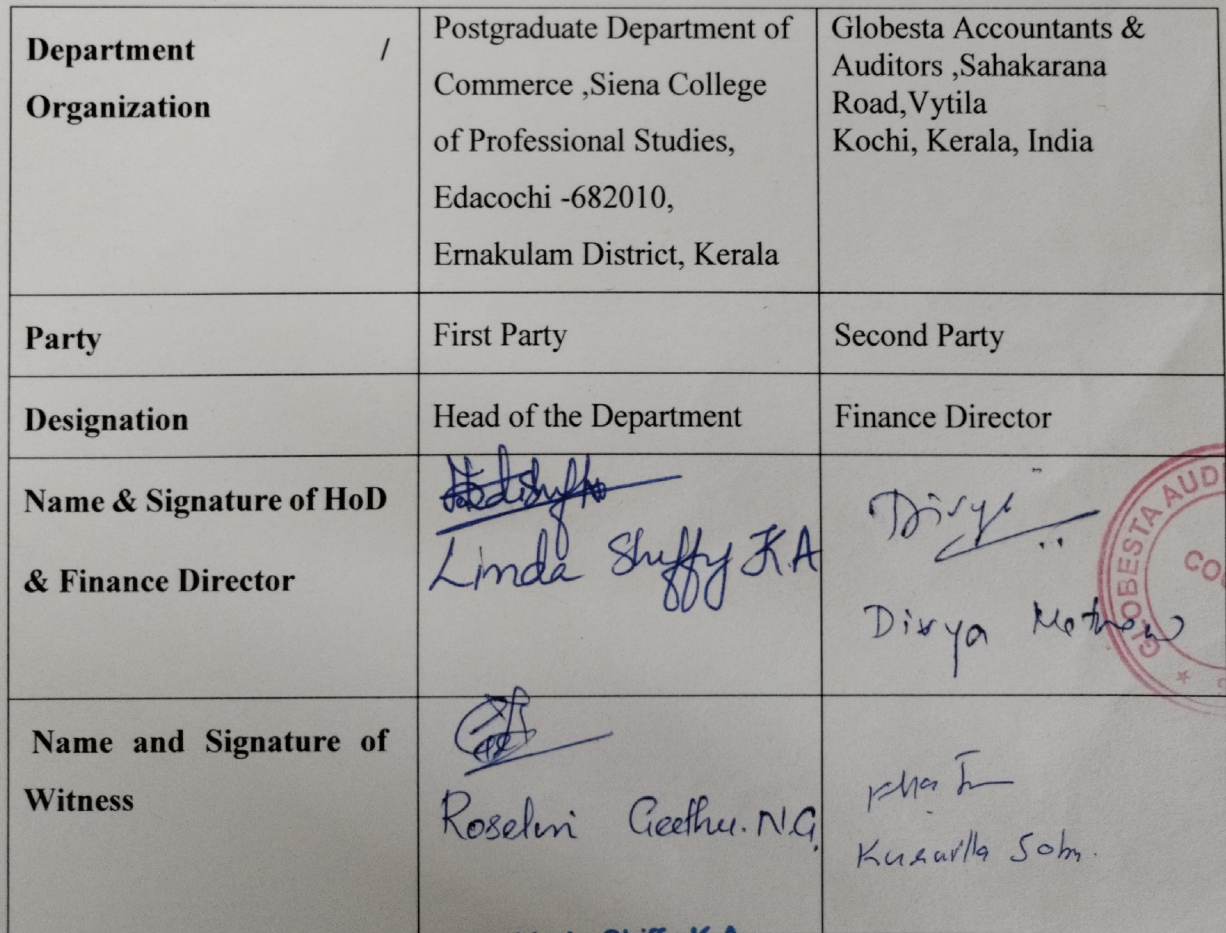 Department /
Organization
Postgraduate Department of
Commerce ,Siena College
of Professional Studies,
Edacochi -682010,
Ernakulam District, Kerala
Globesta Accountants &
Auditors ,Sahakarana
Road,Vytila
Kochi, Kerala, India
Party
First Party
Second Party
Designation
Head of the Department
Finance Director
Name & Signature of HoD
& Finance Director
Linda Sheffy K.A
Divya
Divya Mathew
GLOBESTA AUD
CO
Name and Signature of
Witness
Roselin Geethu. N.G.
Kuruvilla